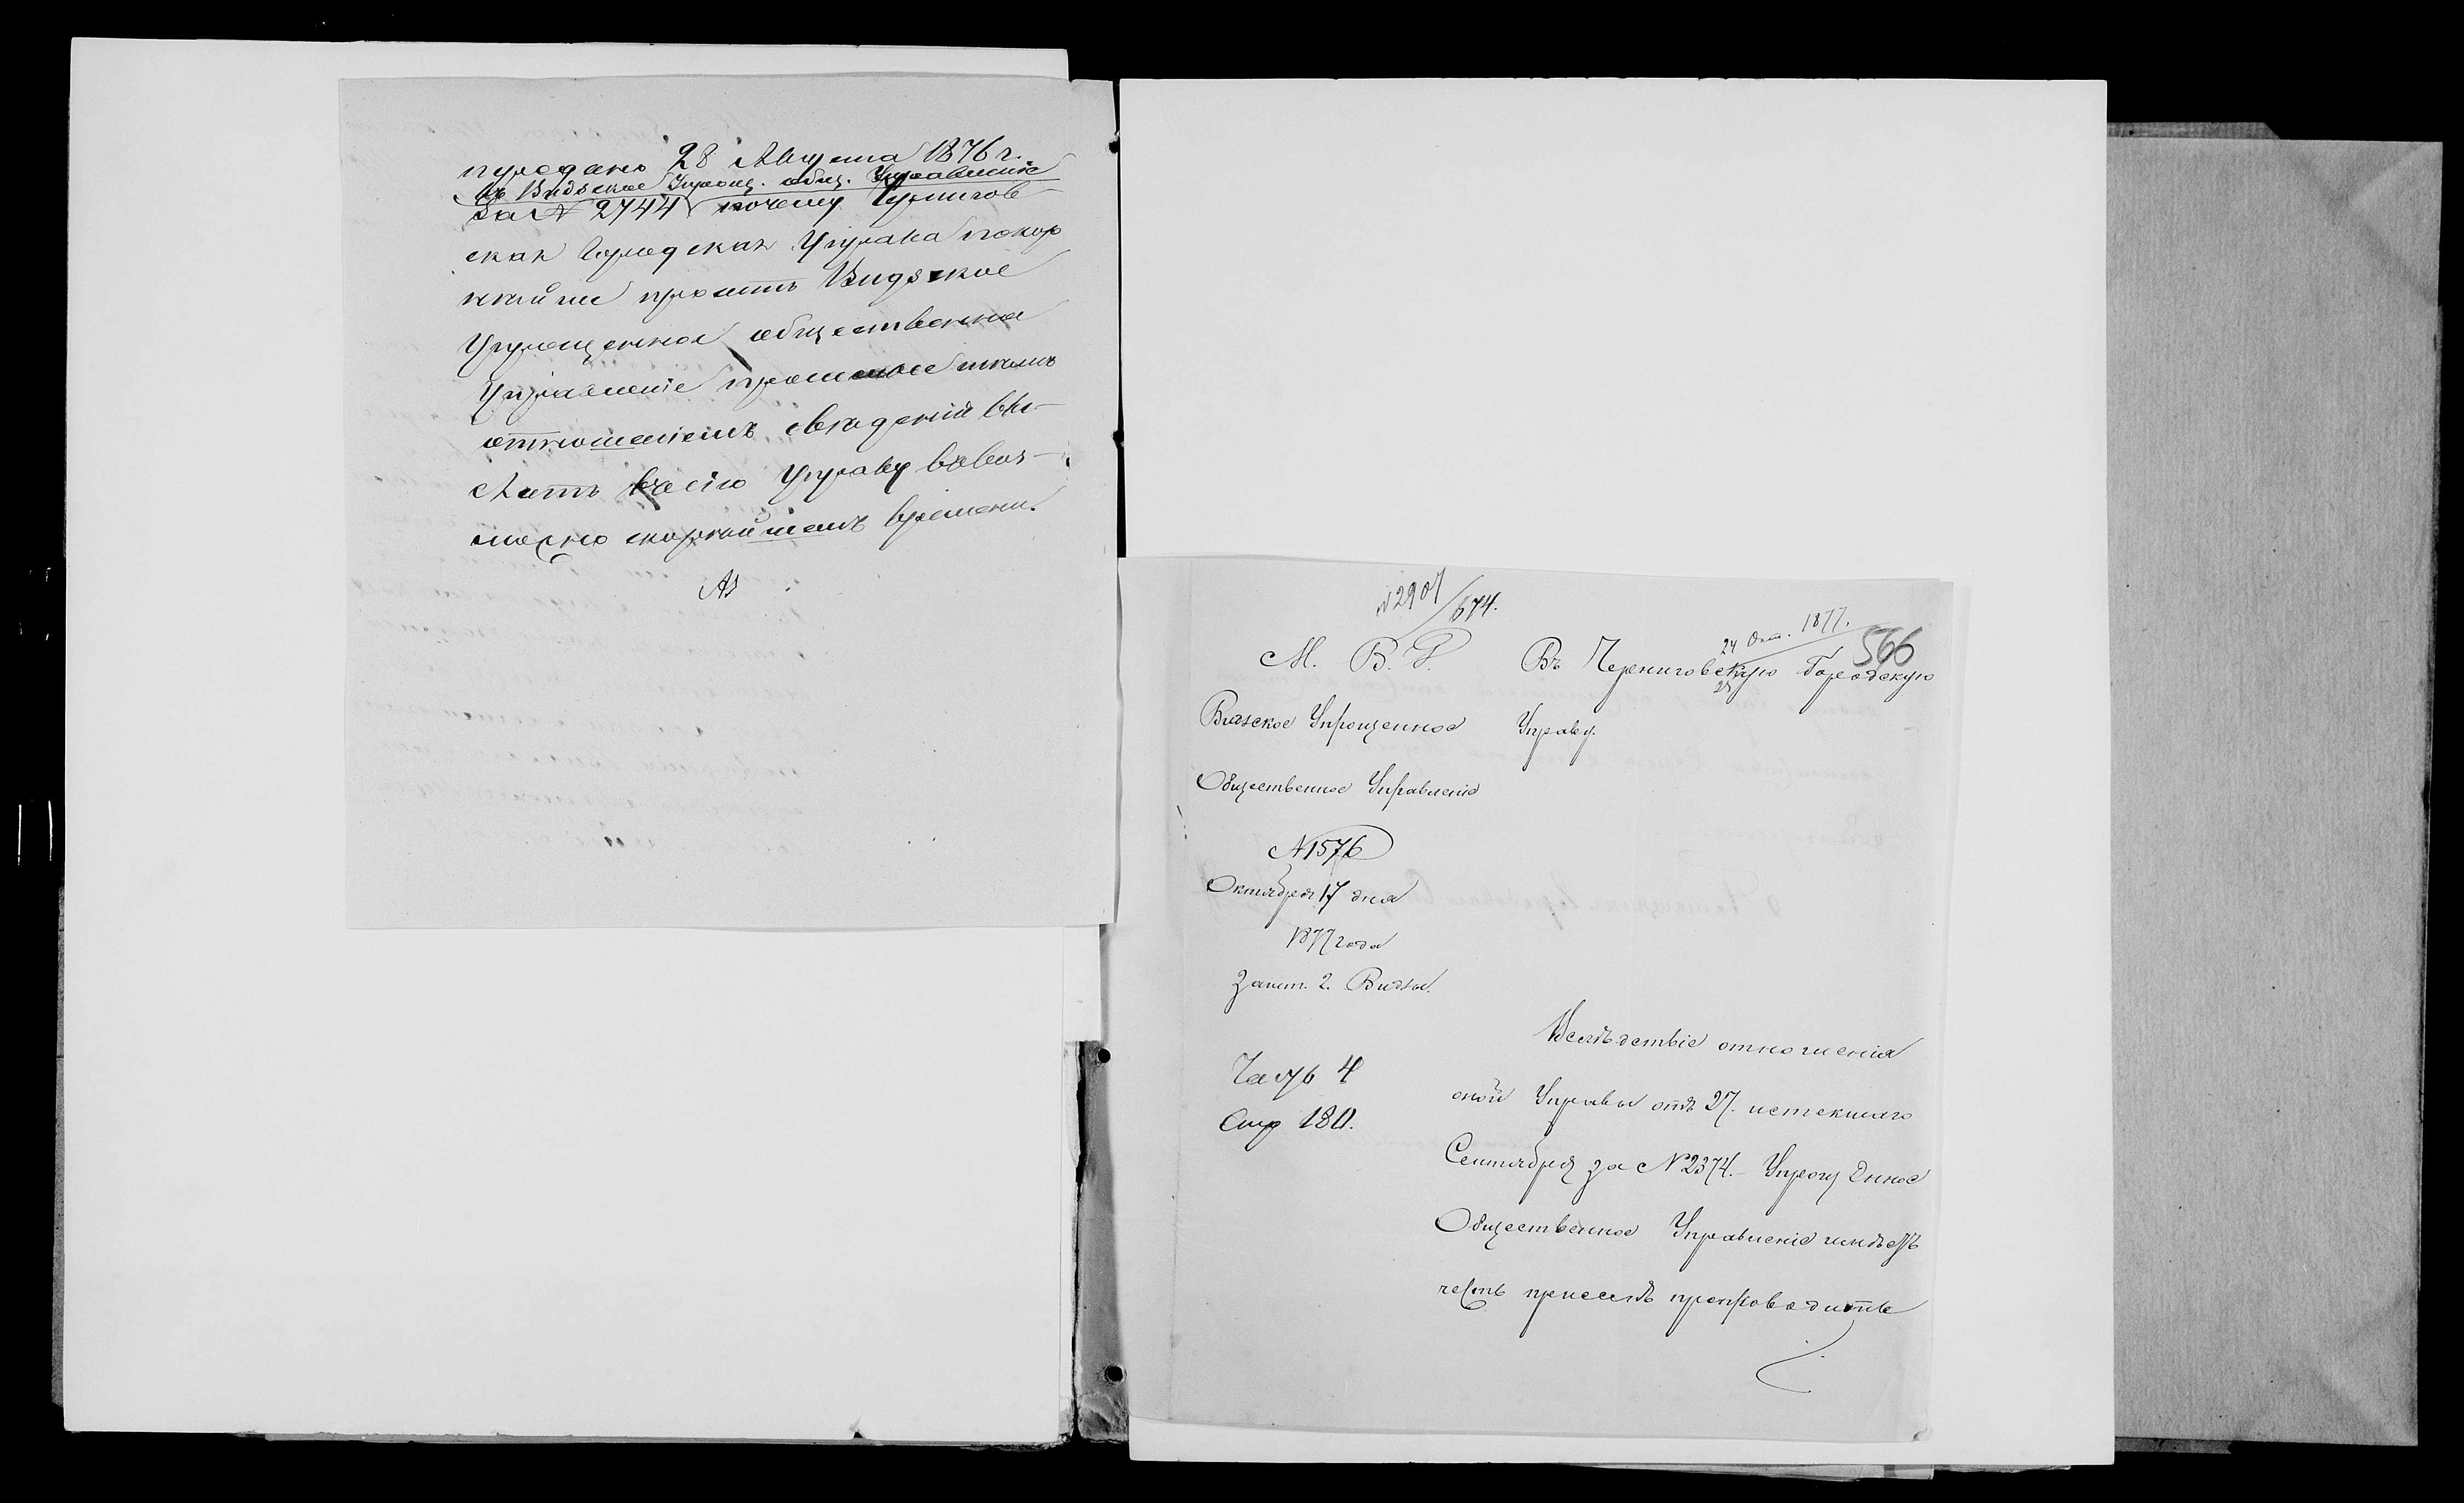 передано 28 Августа 1876 г.
въ Видзское Упрощ. общ. Управленіе
за № 2744 почему Чернигов-
ская Городская Управа покор
нѣйше проситъ Видзское
Упрощенное общественное
Управленіе
отношеніемъ свѣденій вы-
слать въ сію Управу въ воз-
можно скорѣйшемъ времени.
№ 2907/674.
24 Окт. 1877.
566
М. В. Д.
Видзское Упрощенное
Общественное Управленіе
№ 1576
Октября 17 дня
1877 года
Зашт. г. Видзы.
Часть 4
Стр 180.
Въ Черниговскую Городскую
Управу.
Вслѣдствіе отношенія
оной Управы отъ 27. истекшаго
Сентября за № 2374. Упрощенное
Общественное Управленіе имѣетъ
честь присемъ препроводить